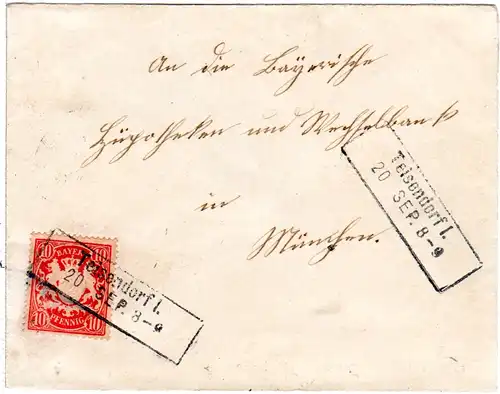 An die Bayerische
Hypotheken und Wechselbank
in
München.
Teisendorf I.
20 SEP. 8-9
10 BAYERN 10
10 PFENNIG 10
Teisendorf I.
20 SEP. 8-9